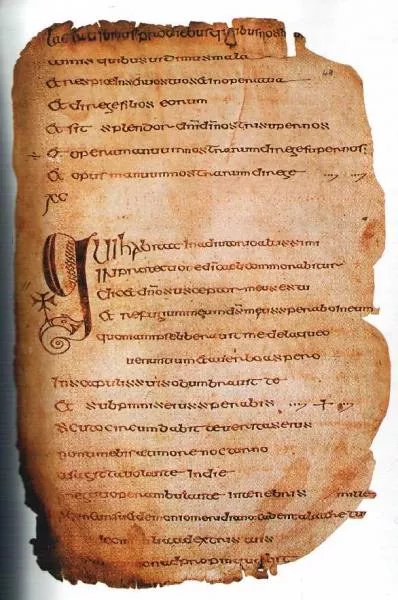 laetati sumus pro diebus quibus nos
annis quibus uidimus mala
48
Et respice in seruos tuos et in opera tua
et dirige filios eorum
Et sit splendor dni di nostri super nos
et opera manuum nostrarum dirige super nos
et opus manuum nostrarum dirige
XC
Qui habitat in adiutorio altissimi
in protectione di caeli commorabitur
dicet dno susceptor meus es tu
et refugium meum ds meus sperabo in eum
quoniam ipse liberauit me de laqueo
uenantium et a uerbo aspero
In scapulis suis obumbrauit te
et sub pinnis eius sperabis
scuto circumdabit te ueritas eius
non timebis a timore nocturno
a sagitta uolante in die
negotio perambulante in tenebris mille
incursu et demonio meridiano cadent a latere tu
milia a dextris tuis
non adpropinquabit